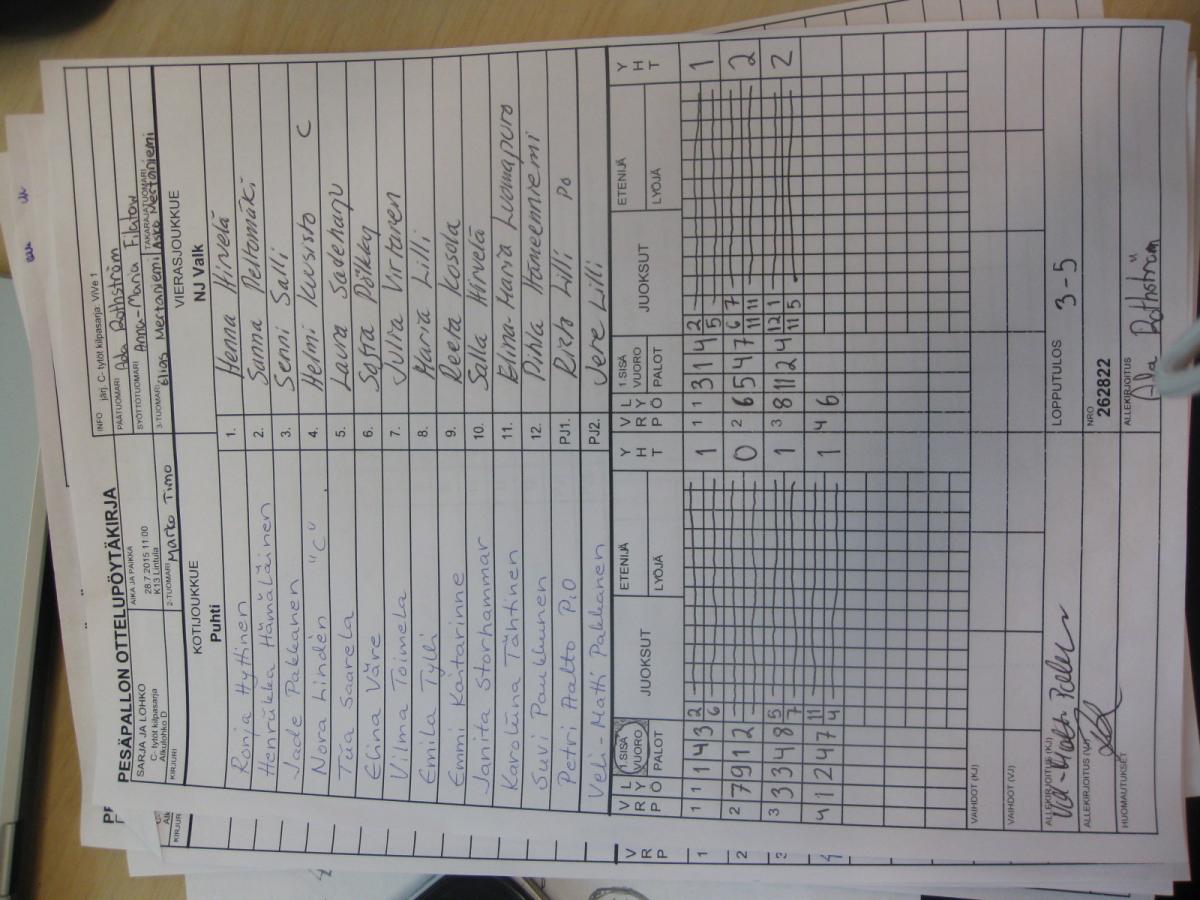 PESÄPALLON OTTELUPÖYTÄKIRJA
SARJA JA LOHKO
C- tytöt kilpasarja
Alkulohko D
AIKA JA PAIKKA
28.7.2015 11:00
K13 Lintula
INFO järj. C- tytöt kilpasarja ViVe 1
PÄÄTUOMARI Ada Rothström
SYÖTTÖTUOMARI Anna-Maria Filatow
KIRJURI
2-TUOMARI Marko Timo
3-TUOMARI Elias Mertaniemi
TAKARAJATUOMARI Asko Mertaniemi
KOTIJOUKKUE
Puhti
VIERASJOUKKUE
NJ Valk
Ronja Hyttinen 1. Henna Hirvelä
Henriikka Hämäläinen 2. Sanna Peltomäki
Jade Pakkanen 3. Senni Salli
Nora Lindén "C" 4. Helmi Kuusisto C
Tiia Saarela 5. Laura Sadeharju
Elina Väre 6. Sofia Pölkky
Vilma Toimela 7. Julia Virtanen
Emilia Tylli 8. Maria Lilli
Emmi Kaitarinne 9. Reeta Kosola
Janita Storhammar 10. Salla Hirvelä
Karoliina Tähtinen 11. Elina-Maria Luomapuro
Suvi Paukkunen 12. Pihla Hämeenniemi
Petri Aalto P.O PJ1. Risto Lilli PO
Veli-Matti Pakkanen PJ2. Jere Lilli
VRP LYÖ 1.SISÄ VUORO PALOT JUOKSUT ETENIJÄ LYÖJÄ YHT VRP LYÖ 1.SISÄ VUORO PALOT JUOKSUT ETENIJÄ LYÖJÄ YHT
1 1 1 4 3 2 6 1 1 1 3 1 4 2 5 1
2 7 9 1 2 0 2 6 5 4 7 6 7 11 11 2
3 3 3 4 8 5 7 1 3 8 11 2 4 12 1 11 5 2
4 1 12 4 7 11 4 1 4 6
VAIHDOT (KJ)
VAIHDOT (VJ)
ALLEKIRJOITUS (KJ)
LOPPUTULOS 3-5
ALLEKIRJOITUS (VJ)
NRO
262822
HUOMAUTUKSET
ALLEKIRJOITUS
Ada Rothström
VRP
1
2
3
4
KIRJUR